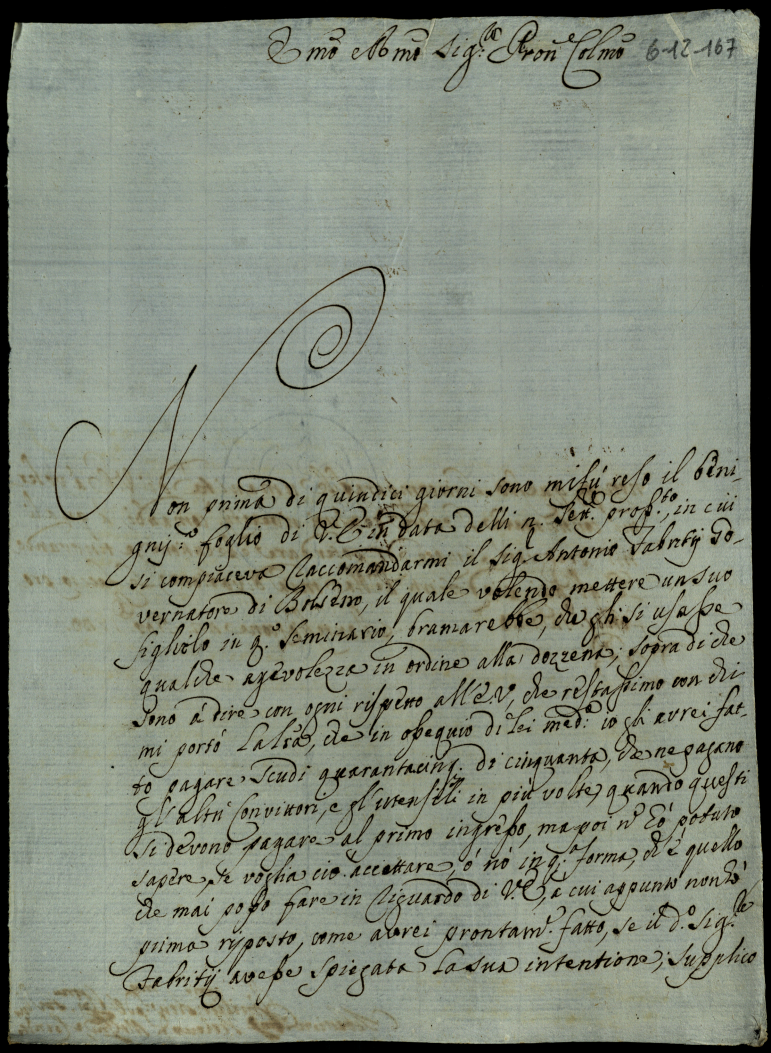 Emo e Rmo Sig.re Pron Colmo 6-12-167
Non prima di quindici giorni sono mi fù reso il beni-
gniss.o foglio di V.E. in data delli 2. Sett. pross.to, in cui
si compiaceva raccomandarmi il sig.r Antonio Fabritij Go-
vernatore di Bolseno, il quale volendo mettere un suo
figliolo in q.o Seminario, bramarebbe, che gli si usasse
qualche agevolezza in ordine alla dozzena; sopra di che
sono à dire con ogni rispetto all'E.V., che restassimo con chi
mi portò la lra, che in ossequio di lei med.a io gli avrei fat-
to pagare scudi quarantacinq. di cinquanta, che ne pagano
gl'altri Convittori, e gl'utensili in più volte, quando questi
si devono pagare al primo ingresso, ma poi nō hò potuto
sapere, se voglia ciò accettare, ò nò in q.a forma, ch'è quello
che mai posso fare in riguardo di V.E., à cui appunto non hò
prima risposto, come avrei prontam.e fatto, se il d.o Sig.re
Fabritij avesse spiegata la sua intentione; supplico